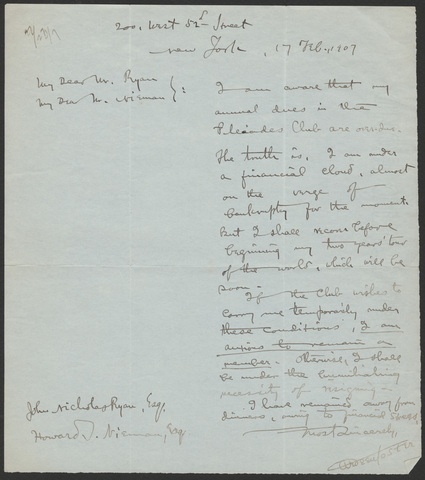 200, West 52d Street
New York, 17 Feb., 1907
My Dear Mr. Ryan
My Dear Mr. Nieman } :
I am aware that my
annual dues in the
Pleiades Club are overdue.
The truth is, I am under
a financial cloud, almost
on the verge of
bankruptcy for the moment.
But I shall recover before
beginning my this years' tour
of the world, which will be
soon.
If the Club wishes to
carry me temporarily under
these conditions, I am
anxious to remain a
member. Otherwise, I shall
be under the humiliating
necessity of resigning.
I have remained away from
dinners, owing to financial
Most Sincerely,
John Nicholas Ryan, Esq.
Howard J. Nieman, Esq.